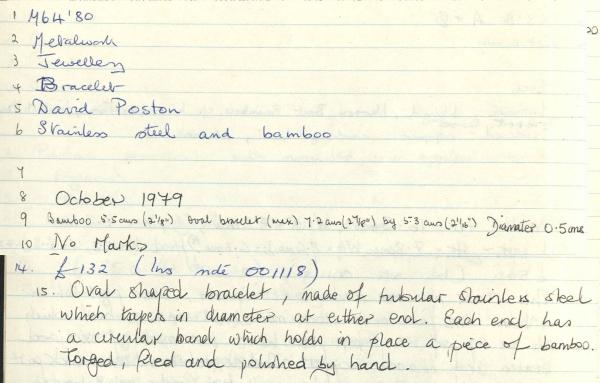 20
1 M64'80
2 Metalwork
3 Jewellery
4 Bracelet
5 David Poston
6 Stainless steel and bamboo
7
8 October 1979
9 Bamboo 5.5cms (2⅛") Oval bracelet (max) 7.2cms (2⅞") by 5.3cms (2 1/16") Diameter 0.5cms
10 No Marks
14. £132 (Ins note 001118)
15. Oval shaped bracelet, made of tubular stainless steel
which tapers in diameter at either end. Each end has
a circular band which holds in place a piece of bamboo.
Forged, filed and polished by hand.